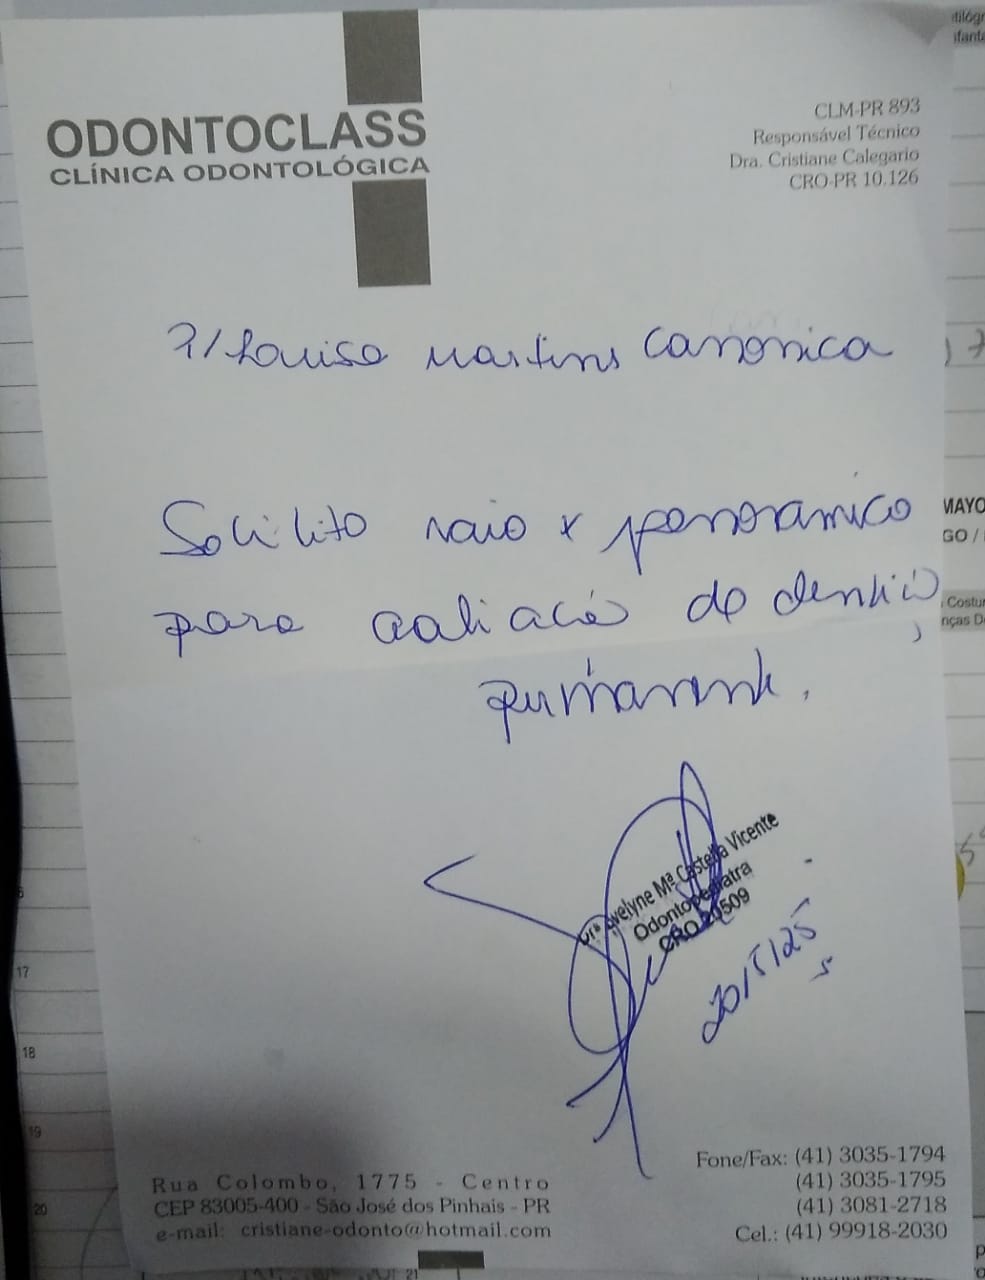 ODONTOCLASS
CLÍNICA ODONTOLÓGICA
CLM-PR 893
Responsável Técnico
Dra. Cristiane Calegario
CRO-PR 10.126
P/ Louisa Martins Canonica
Solicito raio x panoramico
para avaliação da dentição
permanente.
Drª Evelyne Mª Castella Vicente
Odontopediatra
CRO 20509
20/5/25
5
Rua Colombo, 1775 - Centro
CEP 83005-400 - São José dos Pinhais - PR
e-mail: cristiane-odonto@hotmail.com
Fone/Fax: (41) 3035-1794
(41) 3035-1795
(41) 3081-2718
Cel.: (41) 99918-2030
MAYO
GO /
Costu
nças D
17
18
19
20
21